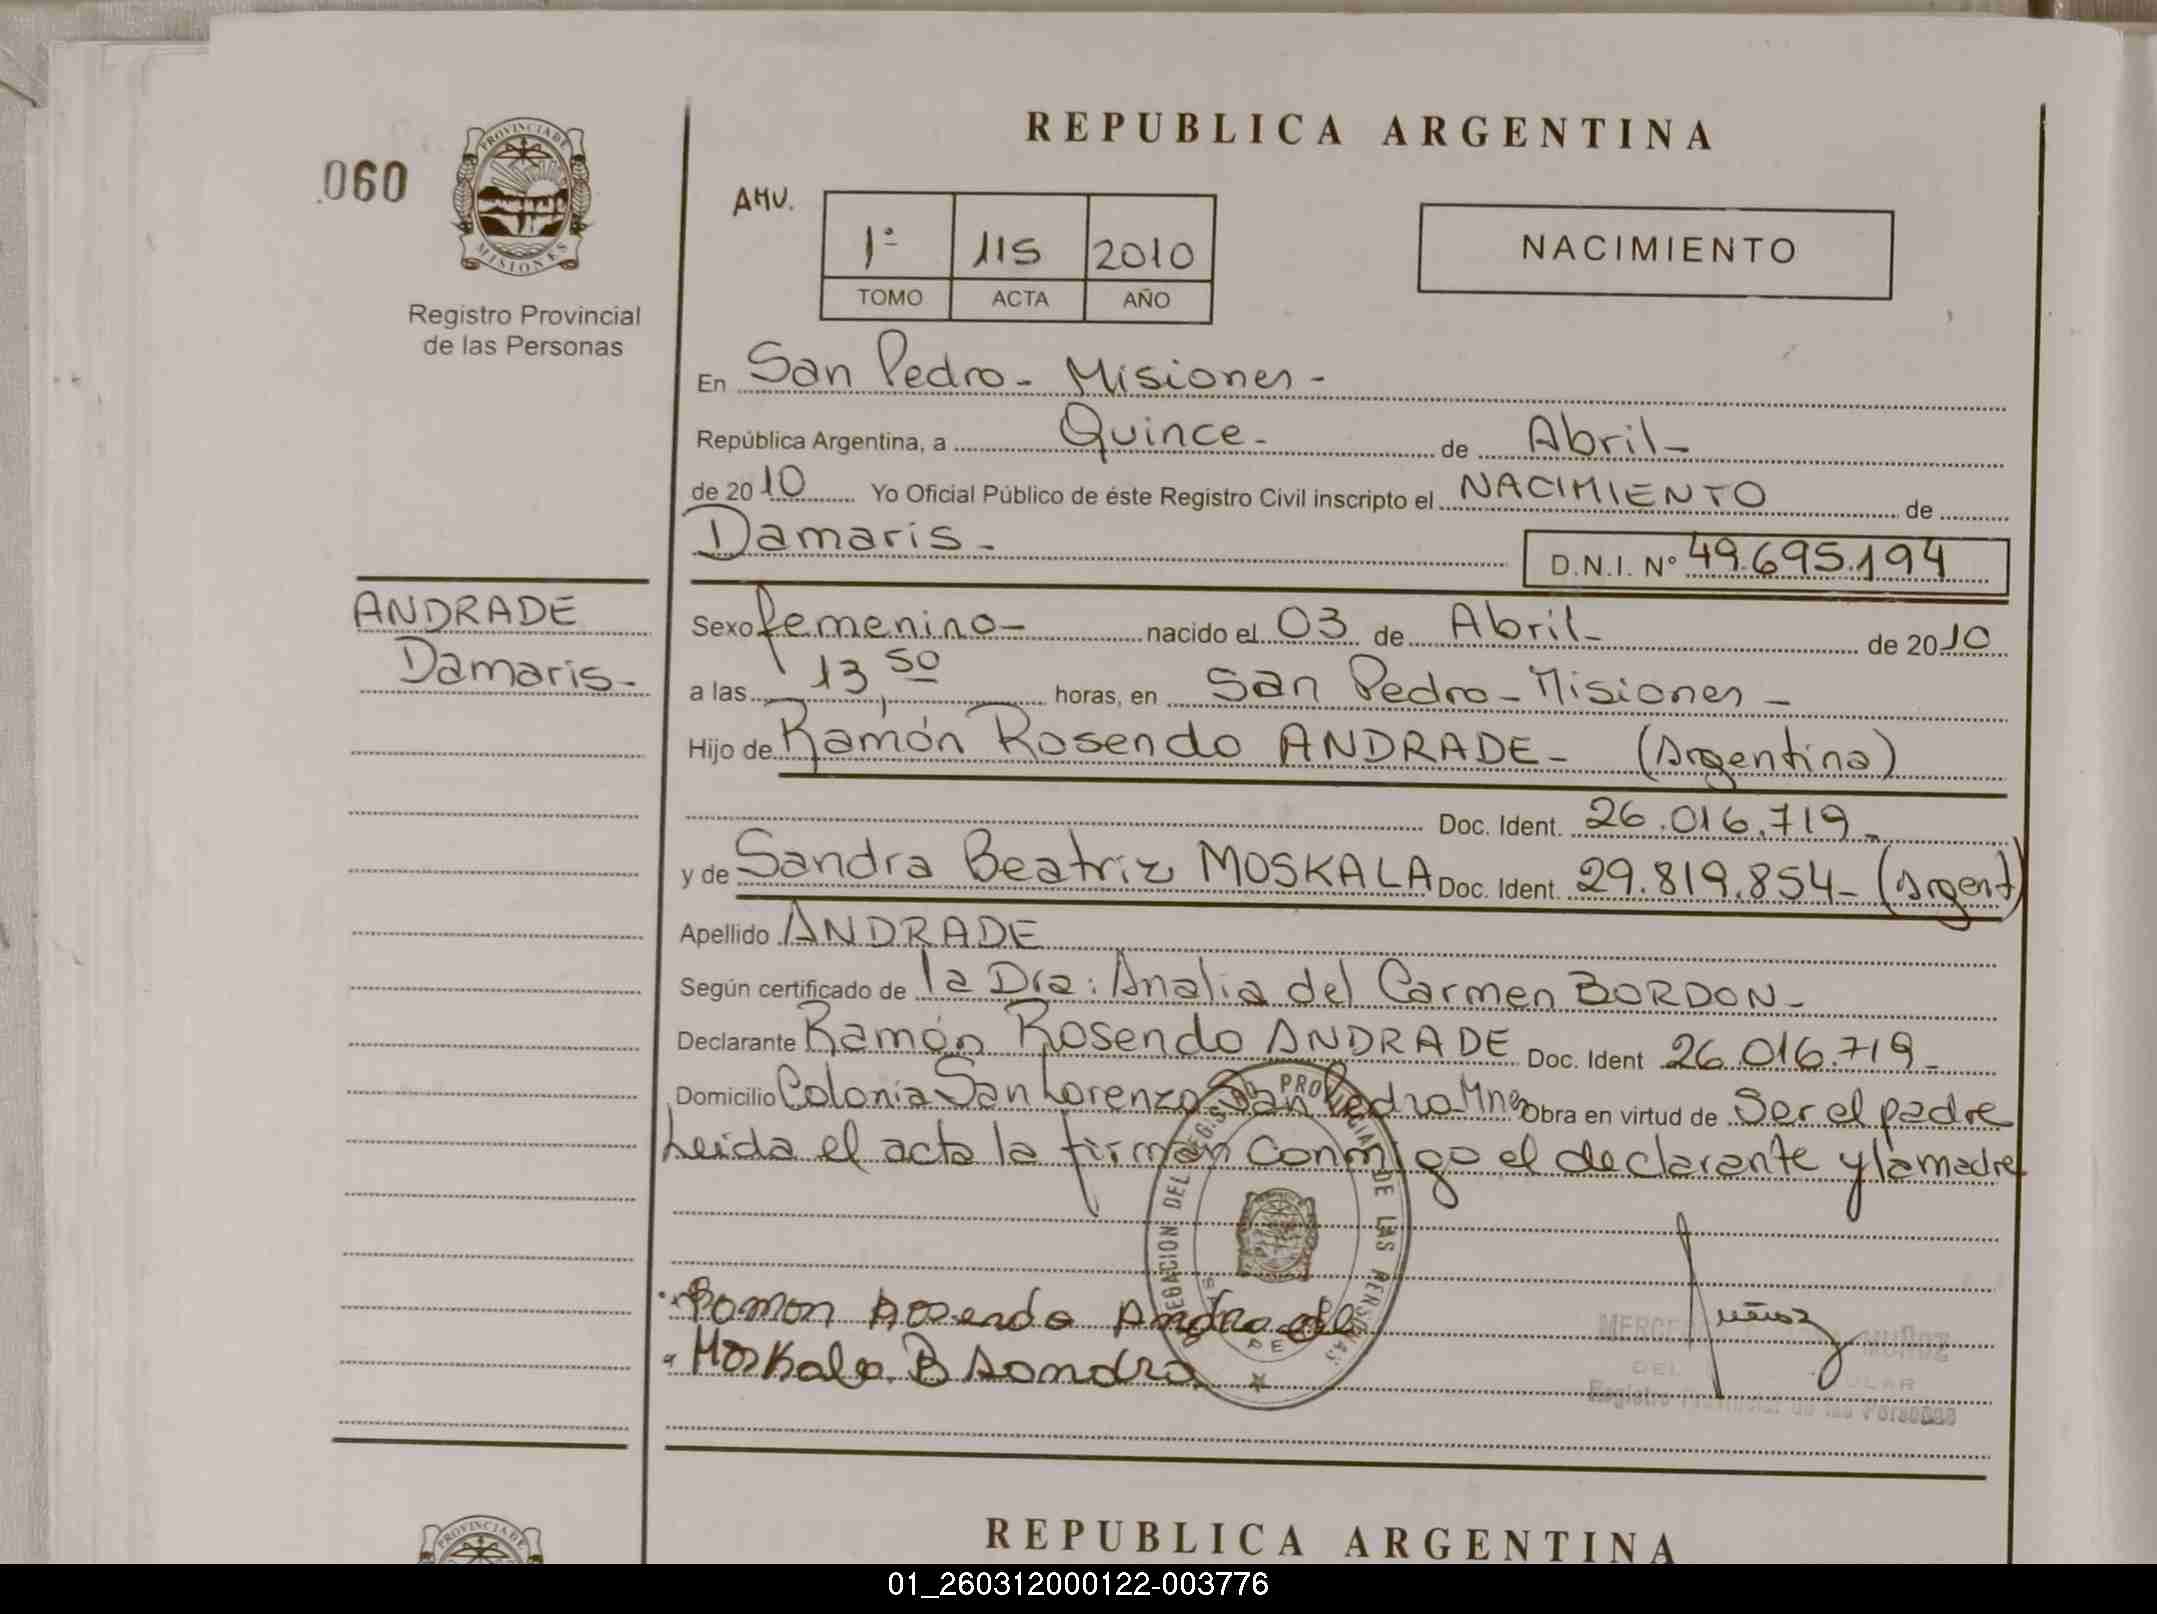 REPUBLICA ARGENTINA
060
PROVINCIA DE
MISIONES
Registro Provincial
de las Personas
AMU.
1º 115 2010
TOMO ACTA AÑO
NACIMIENTO
En San Pedro - Misiones -
República Argentina, a Quince - de Abril -
de 2010 Yo Oficial Público de éste Registro Civil inscripto el NACIMIENTO de
Damaris - D.N.I. Nº 49.695.194
ANDRADE
Damaris -
Sexo femenino - nacido el 03 de Abril - de 2010
a las 13,50 horas, en San Pedro - Misiones -
Hijo de Ramón Rosendo ANDRADE - (Argentina)
Doc. Ident. 26.016.719 -
y de Sandra Beatriz MOSKALA Doc. Ident. 29.819.854 - (Argent)
Apellido ANDRADE
Según certificado de la Dra: Analia del Carmen BORDON -
Declarante Ramón Rosendo ANDRADE Doc. Ident 26.016.719 -
Domicilio Colonia San Lorenzo San Pedro Mnes Obra en virtud de Ser el padre
Leida el acta la firman conmigo el declarante y la madre
DELEGACION DEL REGISTRO PROVINCIAL DE LAS PERSONAS
Ramon Rosendo Andrade
Moskala B Sandra
Muñoz
MUÑOZ
DEL
Registro Provincial de las Personas
PROVINCIA DE
REPUBLICA ARGENTINA
01_260312000122-003776